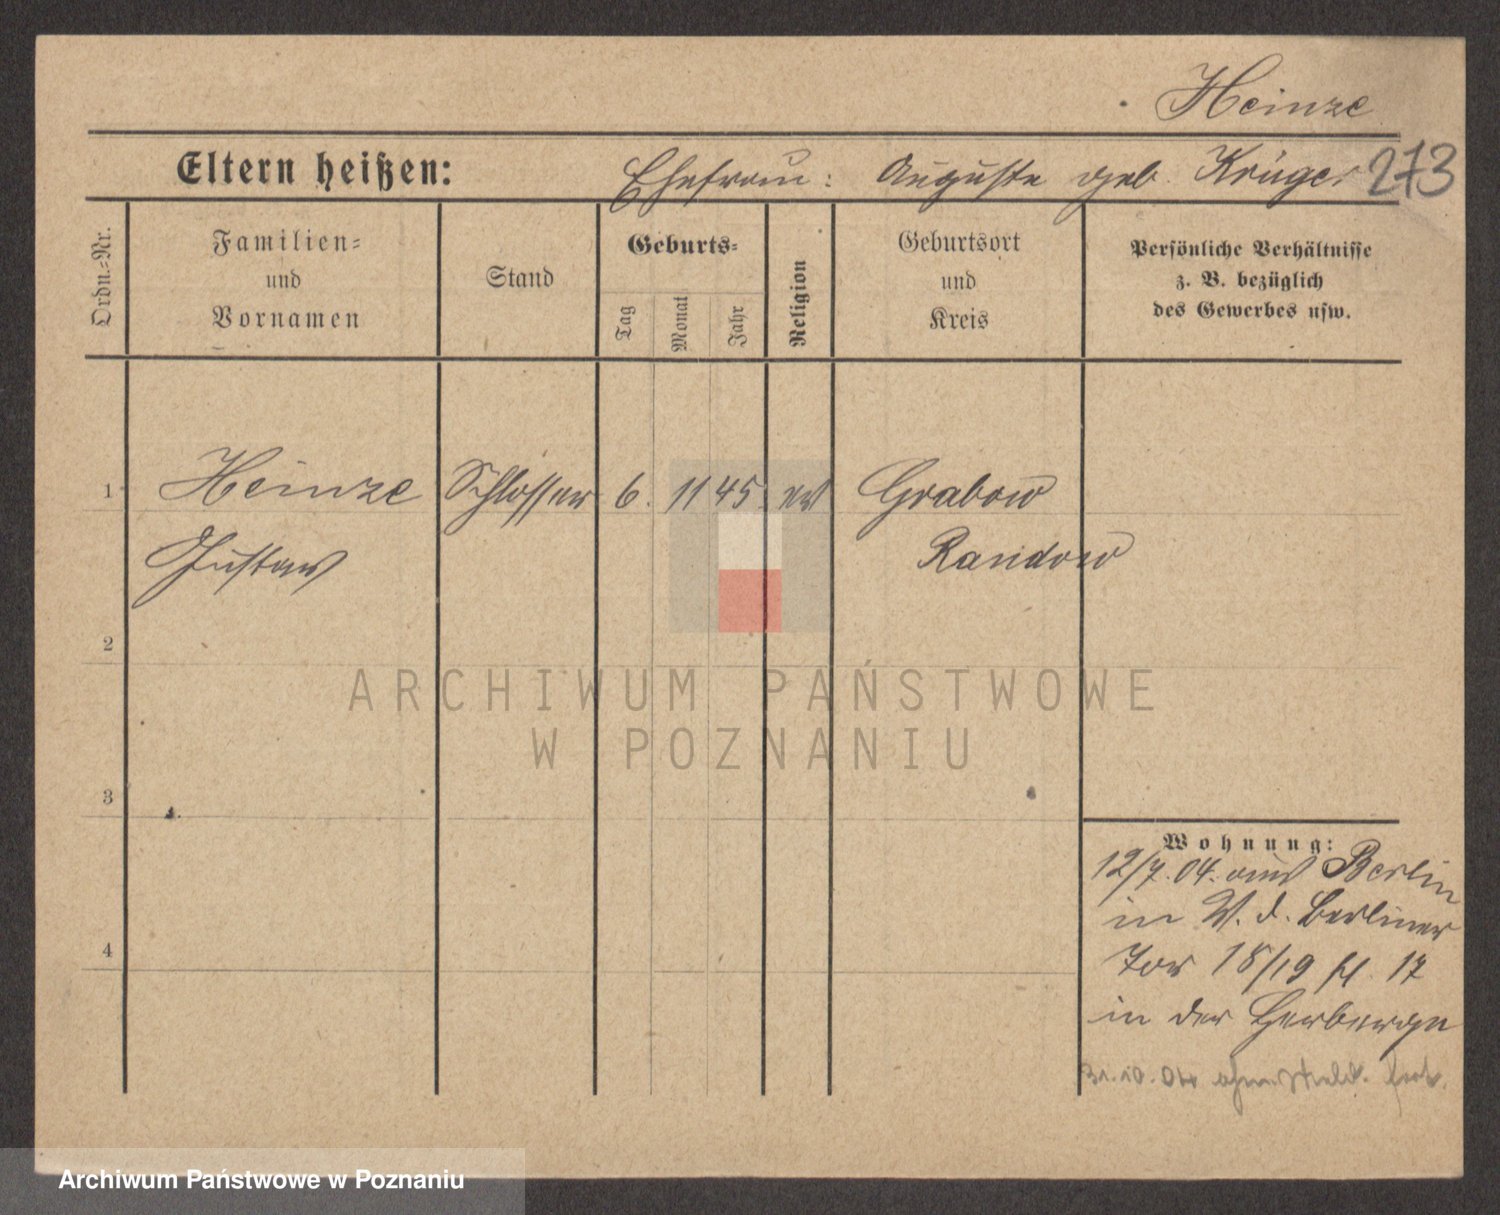 Heinze
Eltern heißen: Ehefrau: Auguste geb. Krüger 273
Ordn.=Nr.
Familien=
und
Vornamen
Stand
Geburts=
Tag
Monat
Jahr
Religion
Geburtsort
und
Kreis
Persönliche Verhältnisse
z. B. bezüglich
des Gewerbes usw.
1 Heinze Schlosser 6. 11 45. ev Grabow
Gustav Randow
2
ARCHIWUM PAŃSTWOWE
W POZNANIU
3
4
Wohnung:
12/7. 04. aus Berlin
in W. d. Berliner
Tor 18/19 H. 17
in der Herberge
31.10.04 ohne Meld. fort.
Archiwum Państwowe w Poznaniu